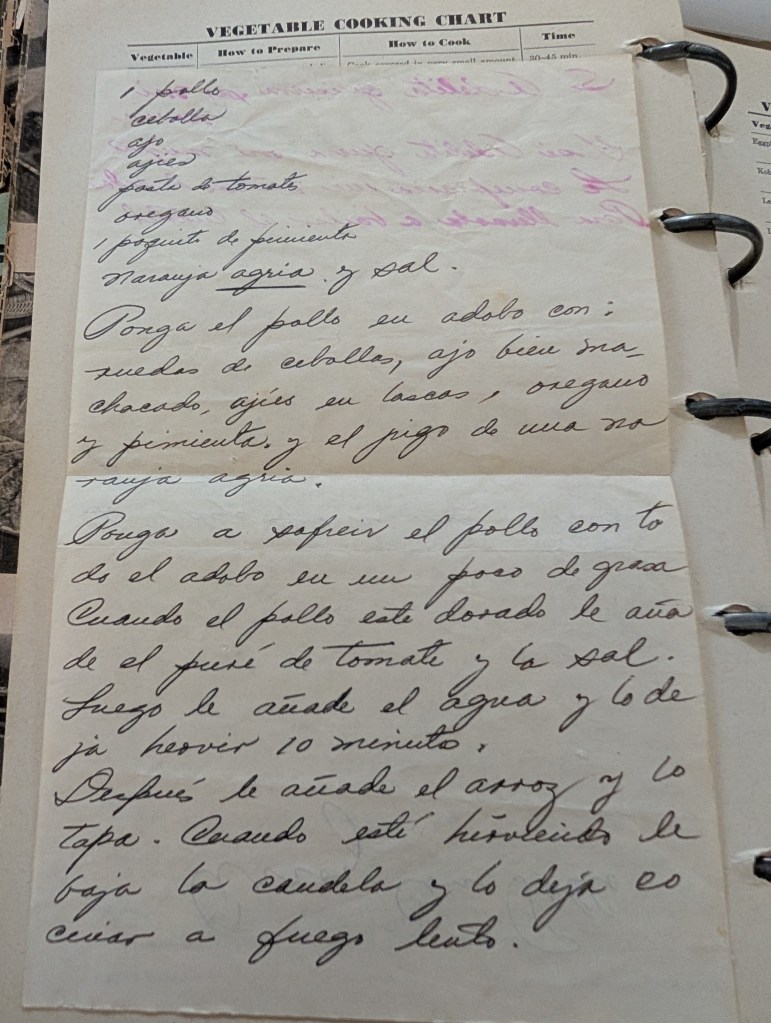 VEGETABLE COOKING CHART
Vegetable How to Prepare How to Cook Time
Cook covered in very small amount 30-45 min.
1 pollo
cebolla
ajo
ajíes
paste de tomate
oregano
1 poquito de pimienta
naranja agria y sal.
Ponga el pollo en adobo con:
ruedas de cebollas, ajo bien ma-
chacado, ajíes en lascas, oregano
y pimienta. y el jugo de una na
ranja agria.
Ponga a sofreir el pollo con to
do el adobo en un poco de grasa
Cuando el pollo este dorado le aña
de el puré de tomate y la sal.
Luego le añade el agua y lo de
ja hervir 10 minuto.
Después le añade el arroz y lo
tapa. Cuando esté hirviendo le
baja la candela y lo deja co
cinar a fuego lento.